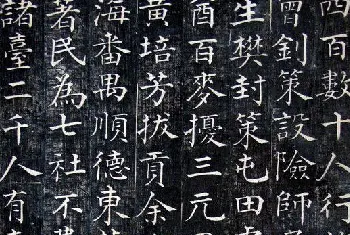 四百數十人行
曾釗策設險師
生樊封策屯田
酉百麥擾三元
黃培芳拔貢余
海番禺順德東
者民為七社不
諸臺二千人有